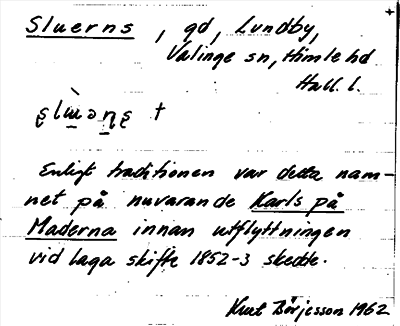 Sluerns, gd, Lundby,
Valinge sn, Himle hd
Hall. l.
Enligt traditionen var detta nam-
net på nuvarande Karls på
Maderna innan utflyttningen
vid laga skifte 1852-3 skedde.
Knut Börjesson 1962